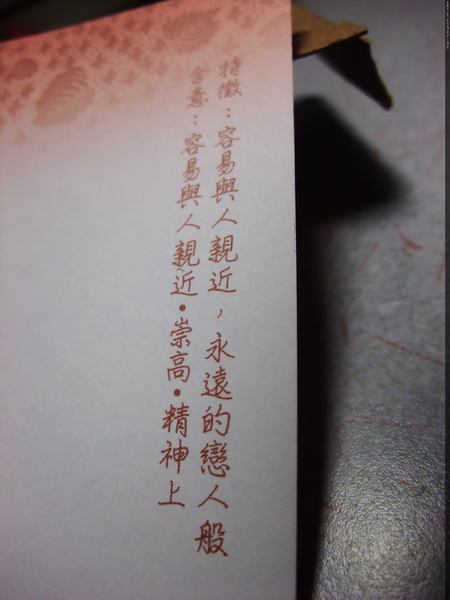 特徵：容易與人親近，永遠的戀人般
含意：容易與人親近·崇高·精神上